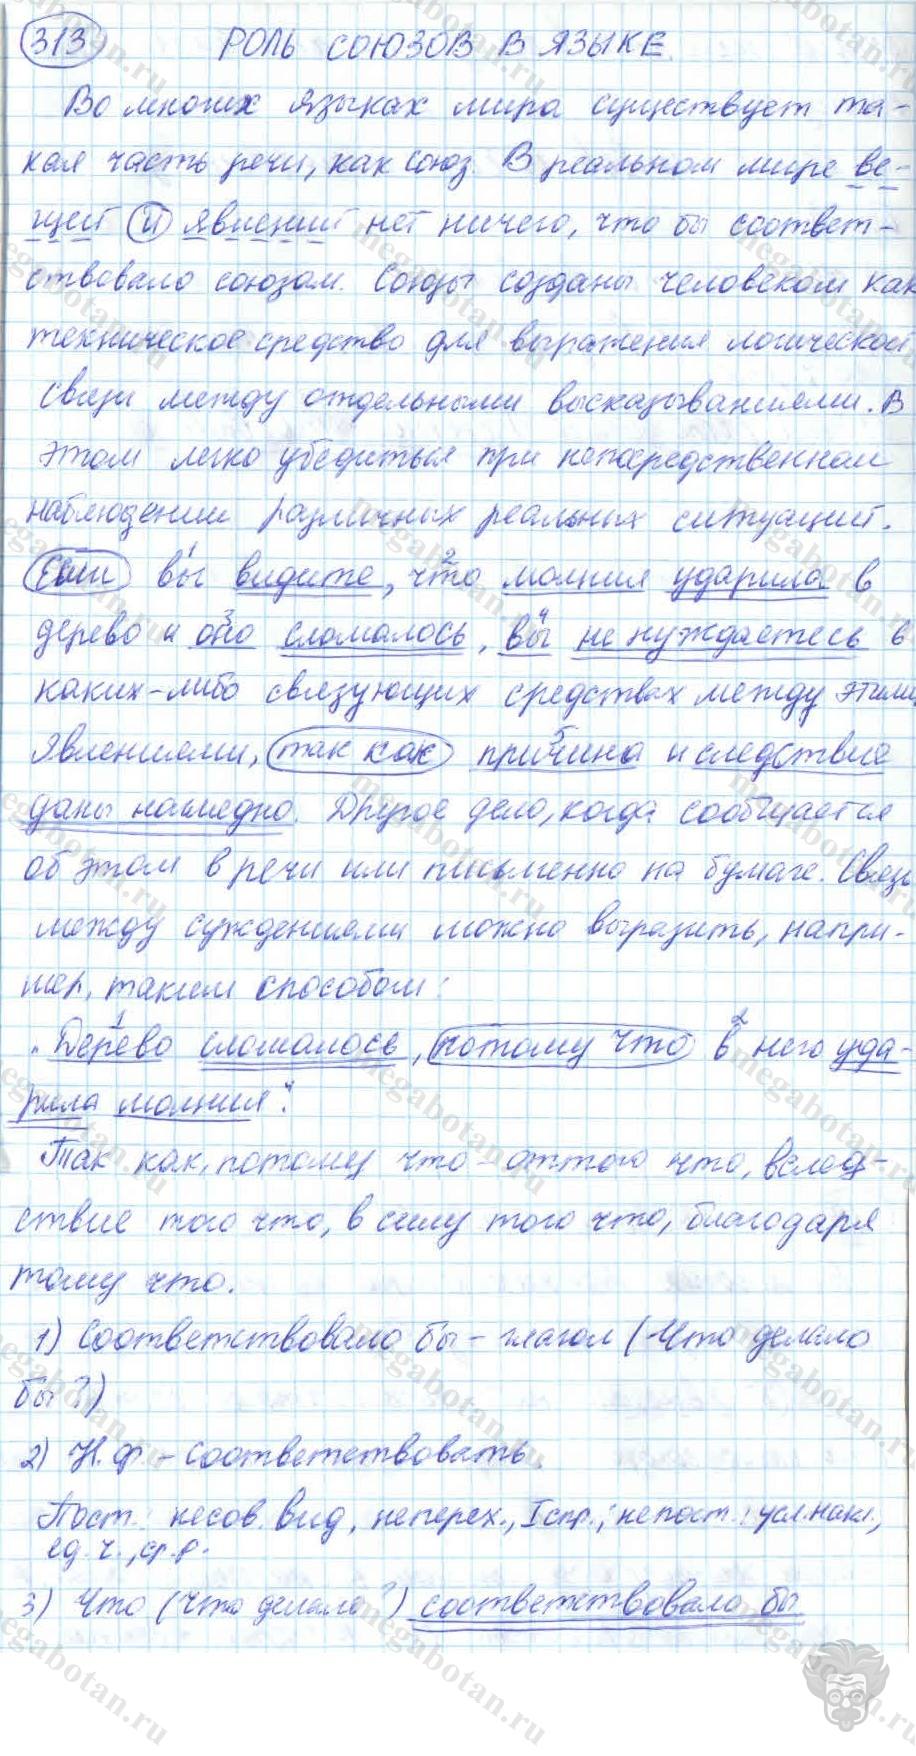 313 РОЛЬ СОЮЗОВ В ЯЗЫКЕ.
Во многих языках мира существует та-
кая часть речи, как союз. В реальном мире ве-
щей и явлений нет ничего, что бы соответ-
ствовало союзам. Союзы созданы человеком как
техническое средство для выражения логической
связи между отдельными высказываниями. В
этом легко убедиться при непосредственном
наблюдении различных реальных ситуаций.
Если вы 1 видите, что 2 молния ударила в
дерево и оно 3 сломалось, вы 4 не нуждаетесь в
каких-либо связующих средствах между этими
явлениями, так как причина 5 и следствие
даны наглядно. Другое дело, когда сообщается
об этом в речи или письменно на бумаге. Связь
между суждениями можно выразить, напри-
мер, таким способом:
„Дерево 1 сломалось, потому что в 2 него уда-
рила молния".
Так как, потому что – оттого что, вслед-
ствие того что, в силу того что, благодаря
тому что.
1) Соответствовало бы – глагол (Что делало
бы?)
2) Н.ф. – соответствовать.
Пост.: несов. вид, неперех., I спр.; непост.: усл. накл.,
ед. ч., ср. р.
3) Что (что делало?) соответствовало бы
megabotan.ru